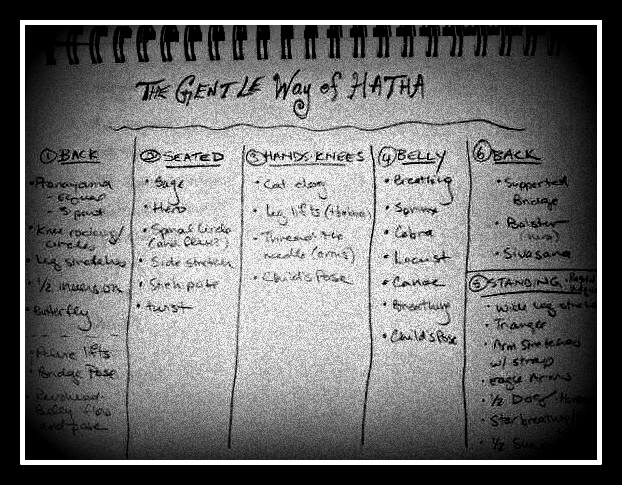 THE GENTLE Way of HATHA
① BACK
• Pranayama
- 3 part
• Knee rocking/
circles
• Leg stretches
• 1/2 inversion
• Butterfly
• Pelvic lifts
• Bridge Pose
Belly flow
and pose
② SEATED
• Sage
• Hero
• Spinal Circles
• Side stretch
• twist
③ HANDS·KNEES
• Cat
• Leg lifts
• Thread the
needle (arms)
• Child's Pose
④ BELLY
• Breathing
• Sphinx
• Cobra
• Locust
• Canoe
• Breathing
• Child's Pose
⑥ BACK
• Supported
Bridge
• Bolster
• Sivasana
⑤ STANDING
• Wide Leg
• Triangle
• Arm Stretches
w/ strap
• Eagle Arms
• 1/2 Dog
• Star breathing
• 1/2